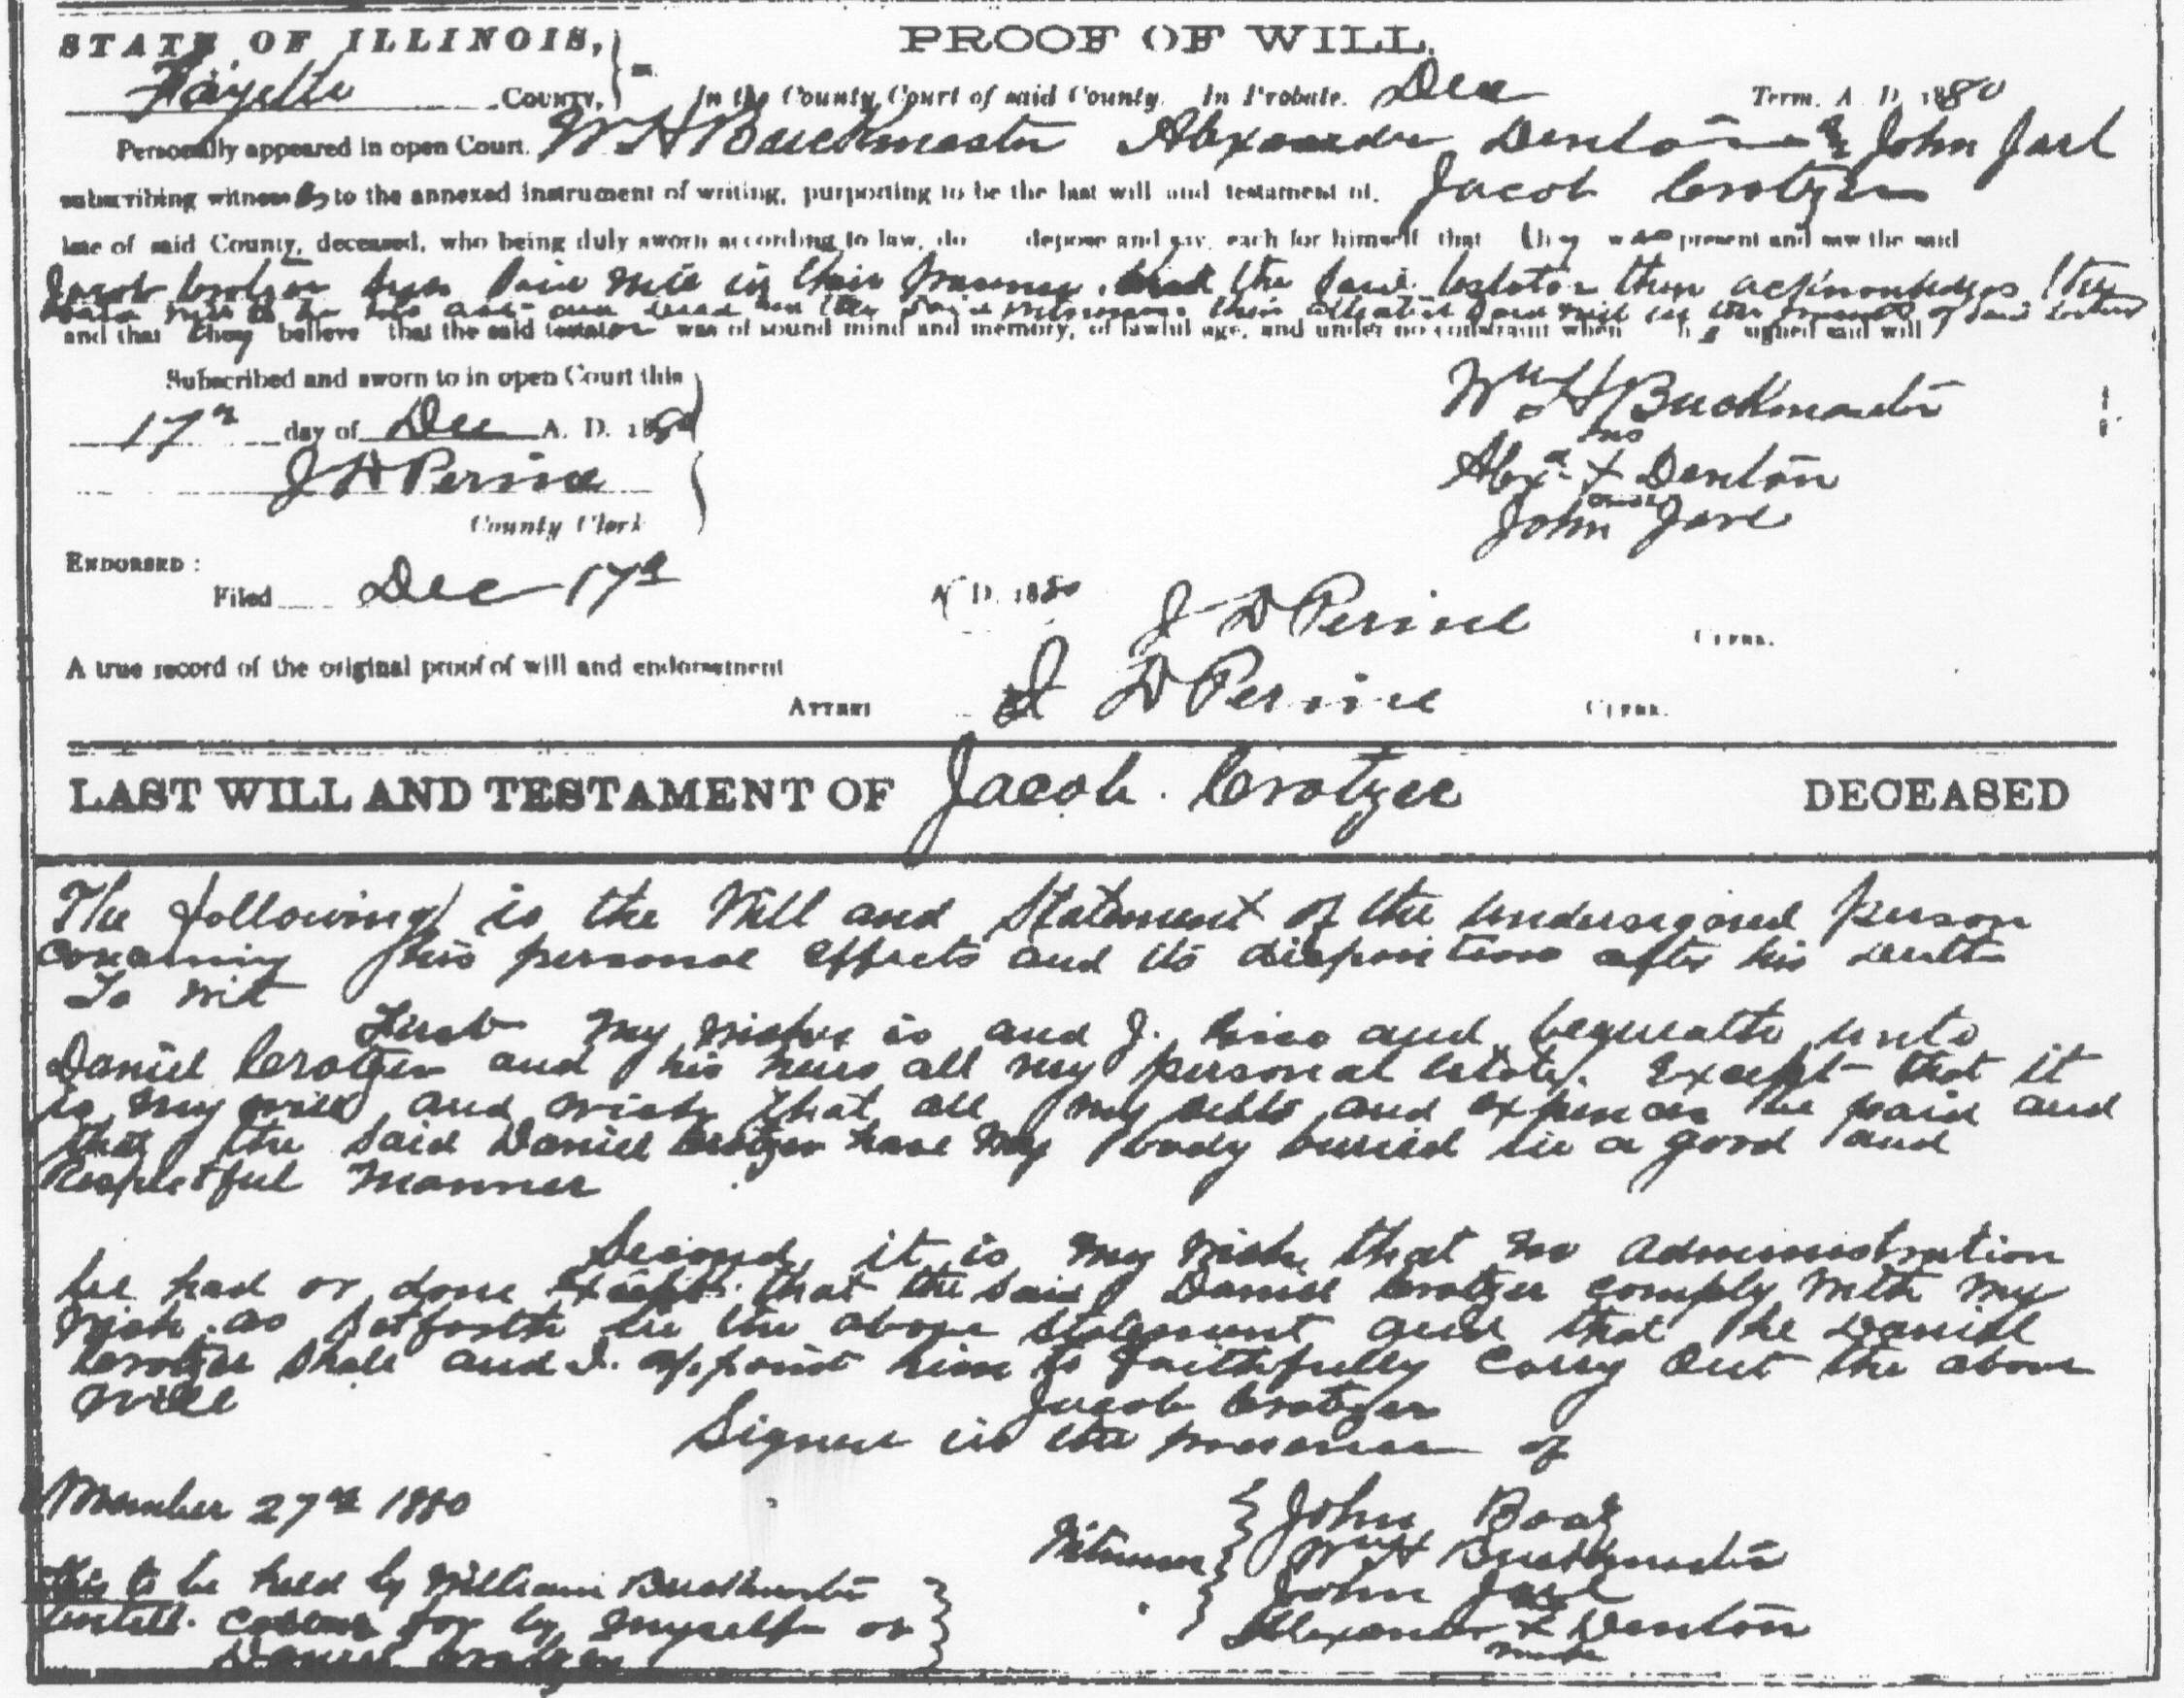 STATE OF ILLINOIS, PROOF OF WILL.
Fayette COUNTY, In the County Court of said County. In Probate. Dec Term. A. D. 1880
Personally appeared in open Court. W H Buckmaster Alexander Denton & John Jarl
subscribing witnesses to the annexed instrument of writing, purporting to be the last will and testament of. Jacob Crotzer
late of said County, deceased, who being duly sworn according to law, do depose and say, each for himself that they was present and saw the said
Jacob Crotzer sign said will in their presence, that the said testator then acknowledges the
said will to be his act and deed and the said witnesses then attested said will in the presence of said testator
and that they believe that the said testator was of sound mind and memory, of lawful age, and under no constraint when he signed said will
Subscribed and sworn to in open Court this
17th day of Dec A. D. 1880
J H Perine
County Clerk
Wm H Buckmaster
his
Alexa X Denton
mark
John Jarl
ENDORSED:
Filed Dec 17th A. D. 1880 J D Perine CLERK.
A true record of the original proof of will and endorsement
ATTEST J D Perine CLERK.
LAST WILL AND TESTAMENT OF Jacob Crotzer DECEASED
The following is the Will and Statement of the undersigned person
concerning his personal effects and its disposition after his death
To Wit
First My wishes is and I. Give and bequeath unto
Daniel Crotzer and his heirs all my personal estate. Except that it
is my will and wish that all my debts and expences be paid and
that the said Daniel Crotzer have my body buried in a good and
Respectful manner
Second it is my wish that no administration
be had or done Except that the said Daniel Crotzer comply with my
wish as setforth in the above statement and that he Daniel
Crotzer shall and I. appoint him to faithfully carry out the above
will Jacob Crotzer
Signed in the presence of
November 27th 1880
Witnesses John Boaz
Wm H Buckmaster
John Jarl
Alexander X Denton
mark
This to be held by William Buckmaster
untill called for by myself or
Daniel Crotzer